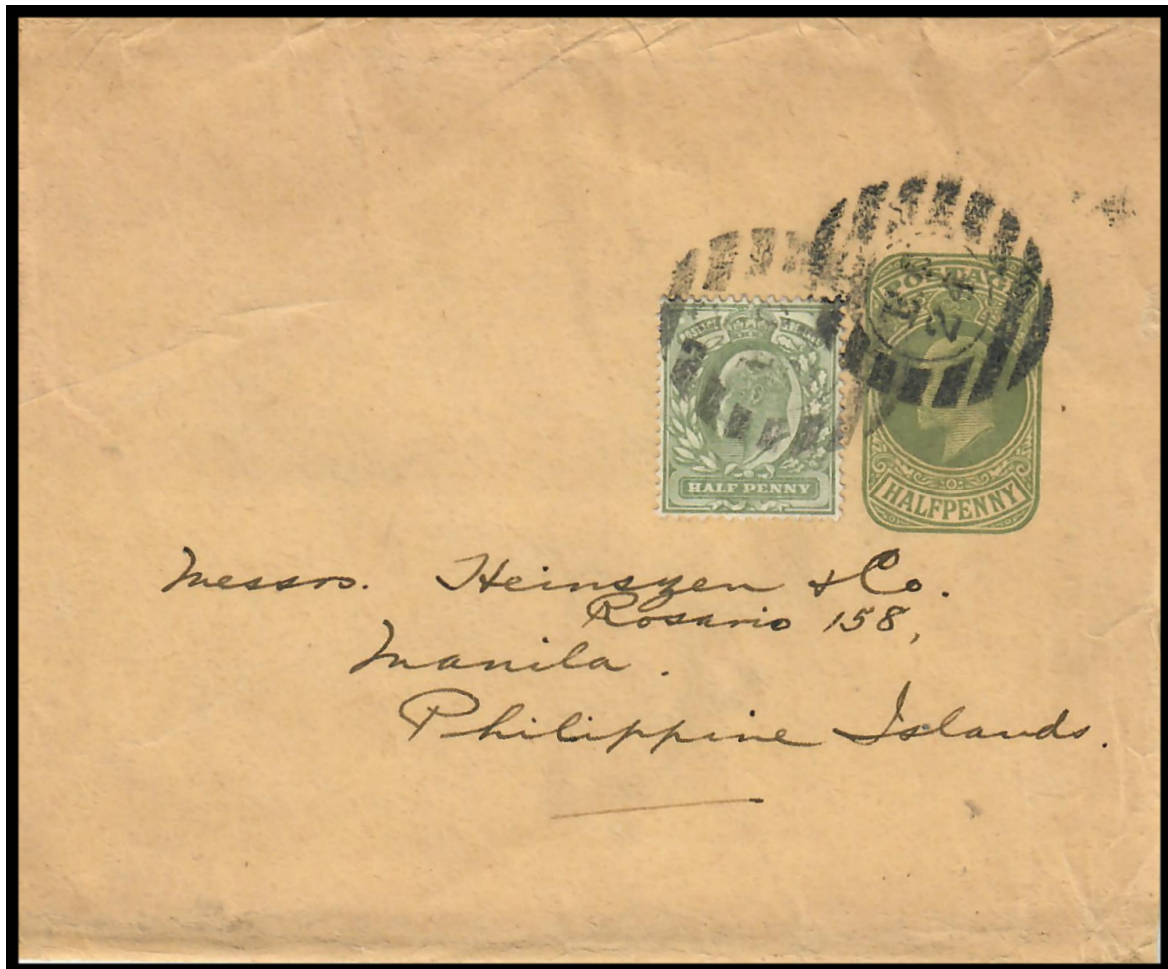 POSTAGE
HALF PENNY
HALFPENNY
Messrs. Heinszen & Co.
Rosario 158,
Manila.
Philippine Islands.